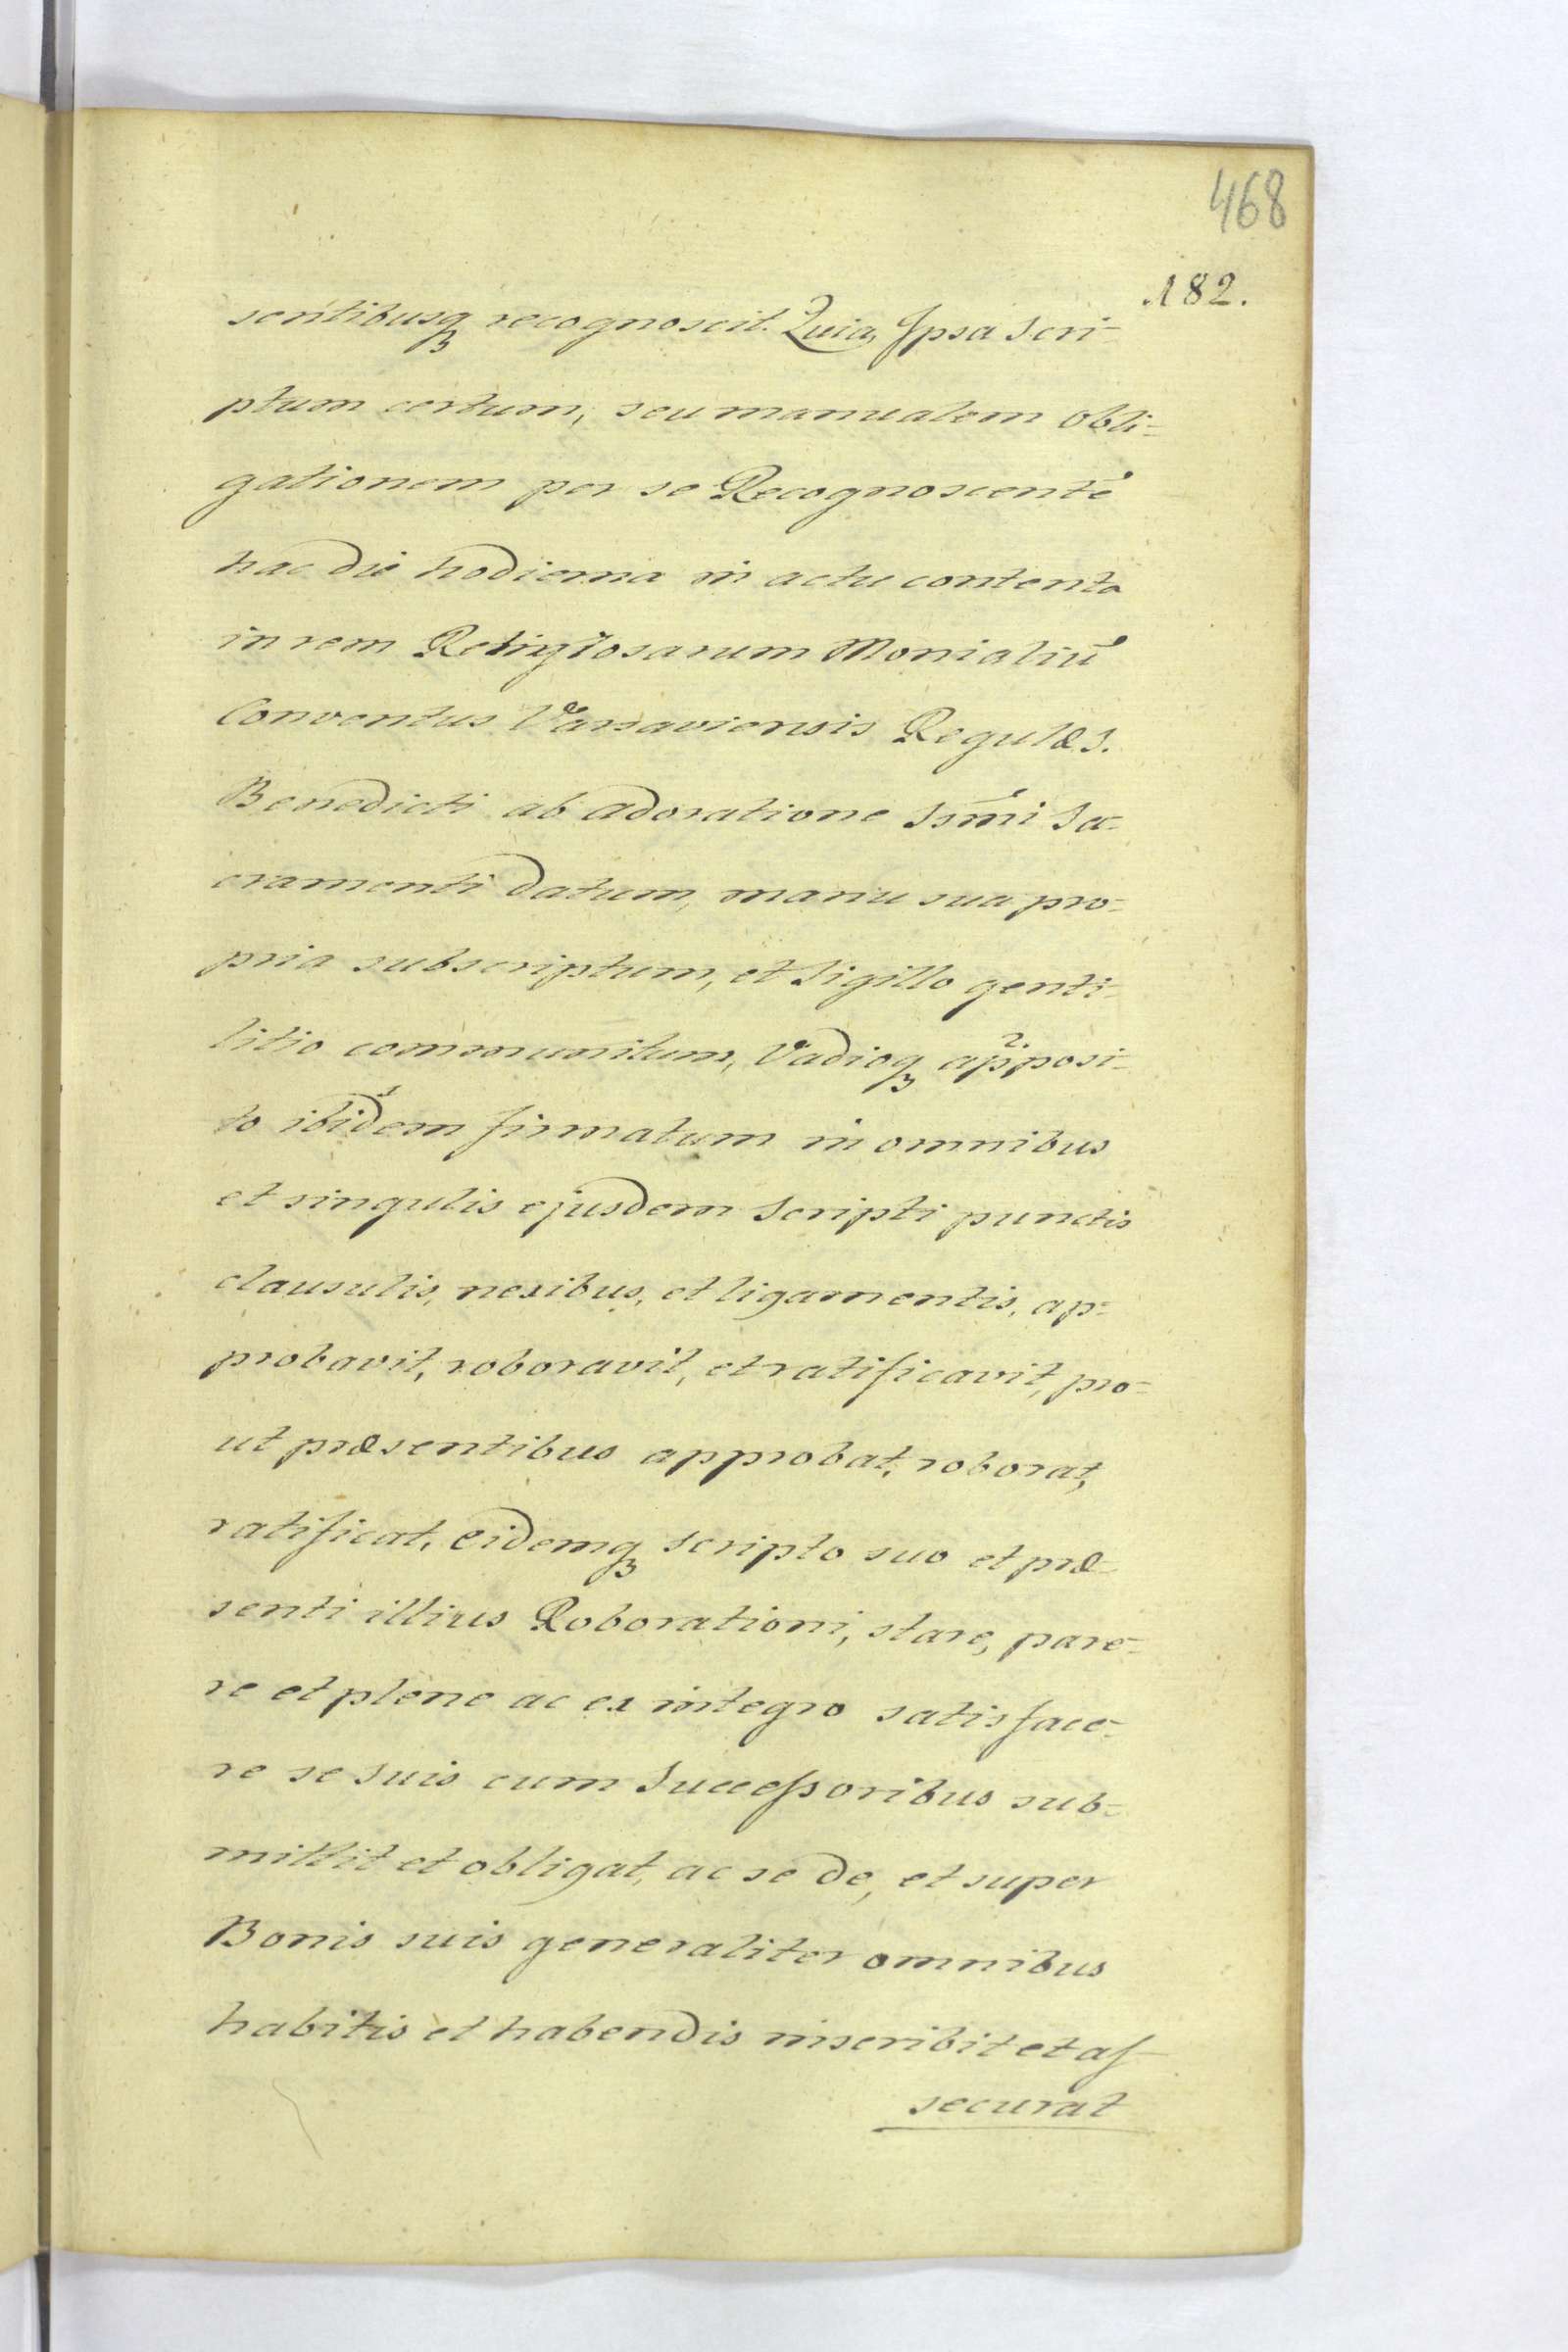 468
182.
sentibusq3 recognoscit. Quia, Ipsa Scri-
ptum certum, seu manualem obli=
gationem per se Recognoscentē
hac die hodierna in actu contenta
in rem Religiosarum Monialiū
Conventus Varsaviensis Regulæ S.
Benedicti ab adoratione SSm̄i Sa-
cramenti datum, manu sua pro=
pria subscriptum, et Sigillo genti-
litio communitum, Vadioq3 apposi-
to ibidem firmatum in omnibus
et singulis ejusdem Scripti punctis
clausulis, nexibus, et ligamentis, ap=
probavit, roboravit, et ratificavit, pro=
ut præsentibus approbat, roborat,
ratificat, eidemq3 scripto suo et præ-
senti illius Roborationi, stare, pare=
re et plene ac ex integro satisface-
re se suis cum Successoribus sub=
mittit et obligat, ac se de, et super
Bonis suis generaliter omnibus
habitis et habendis inscribit et as-
securat